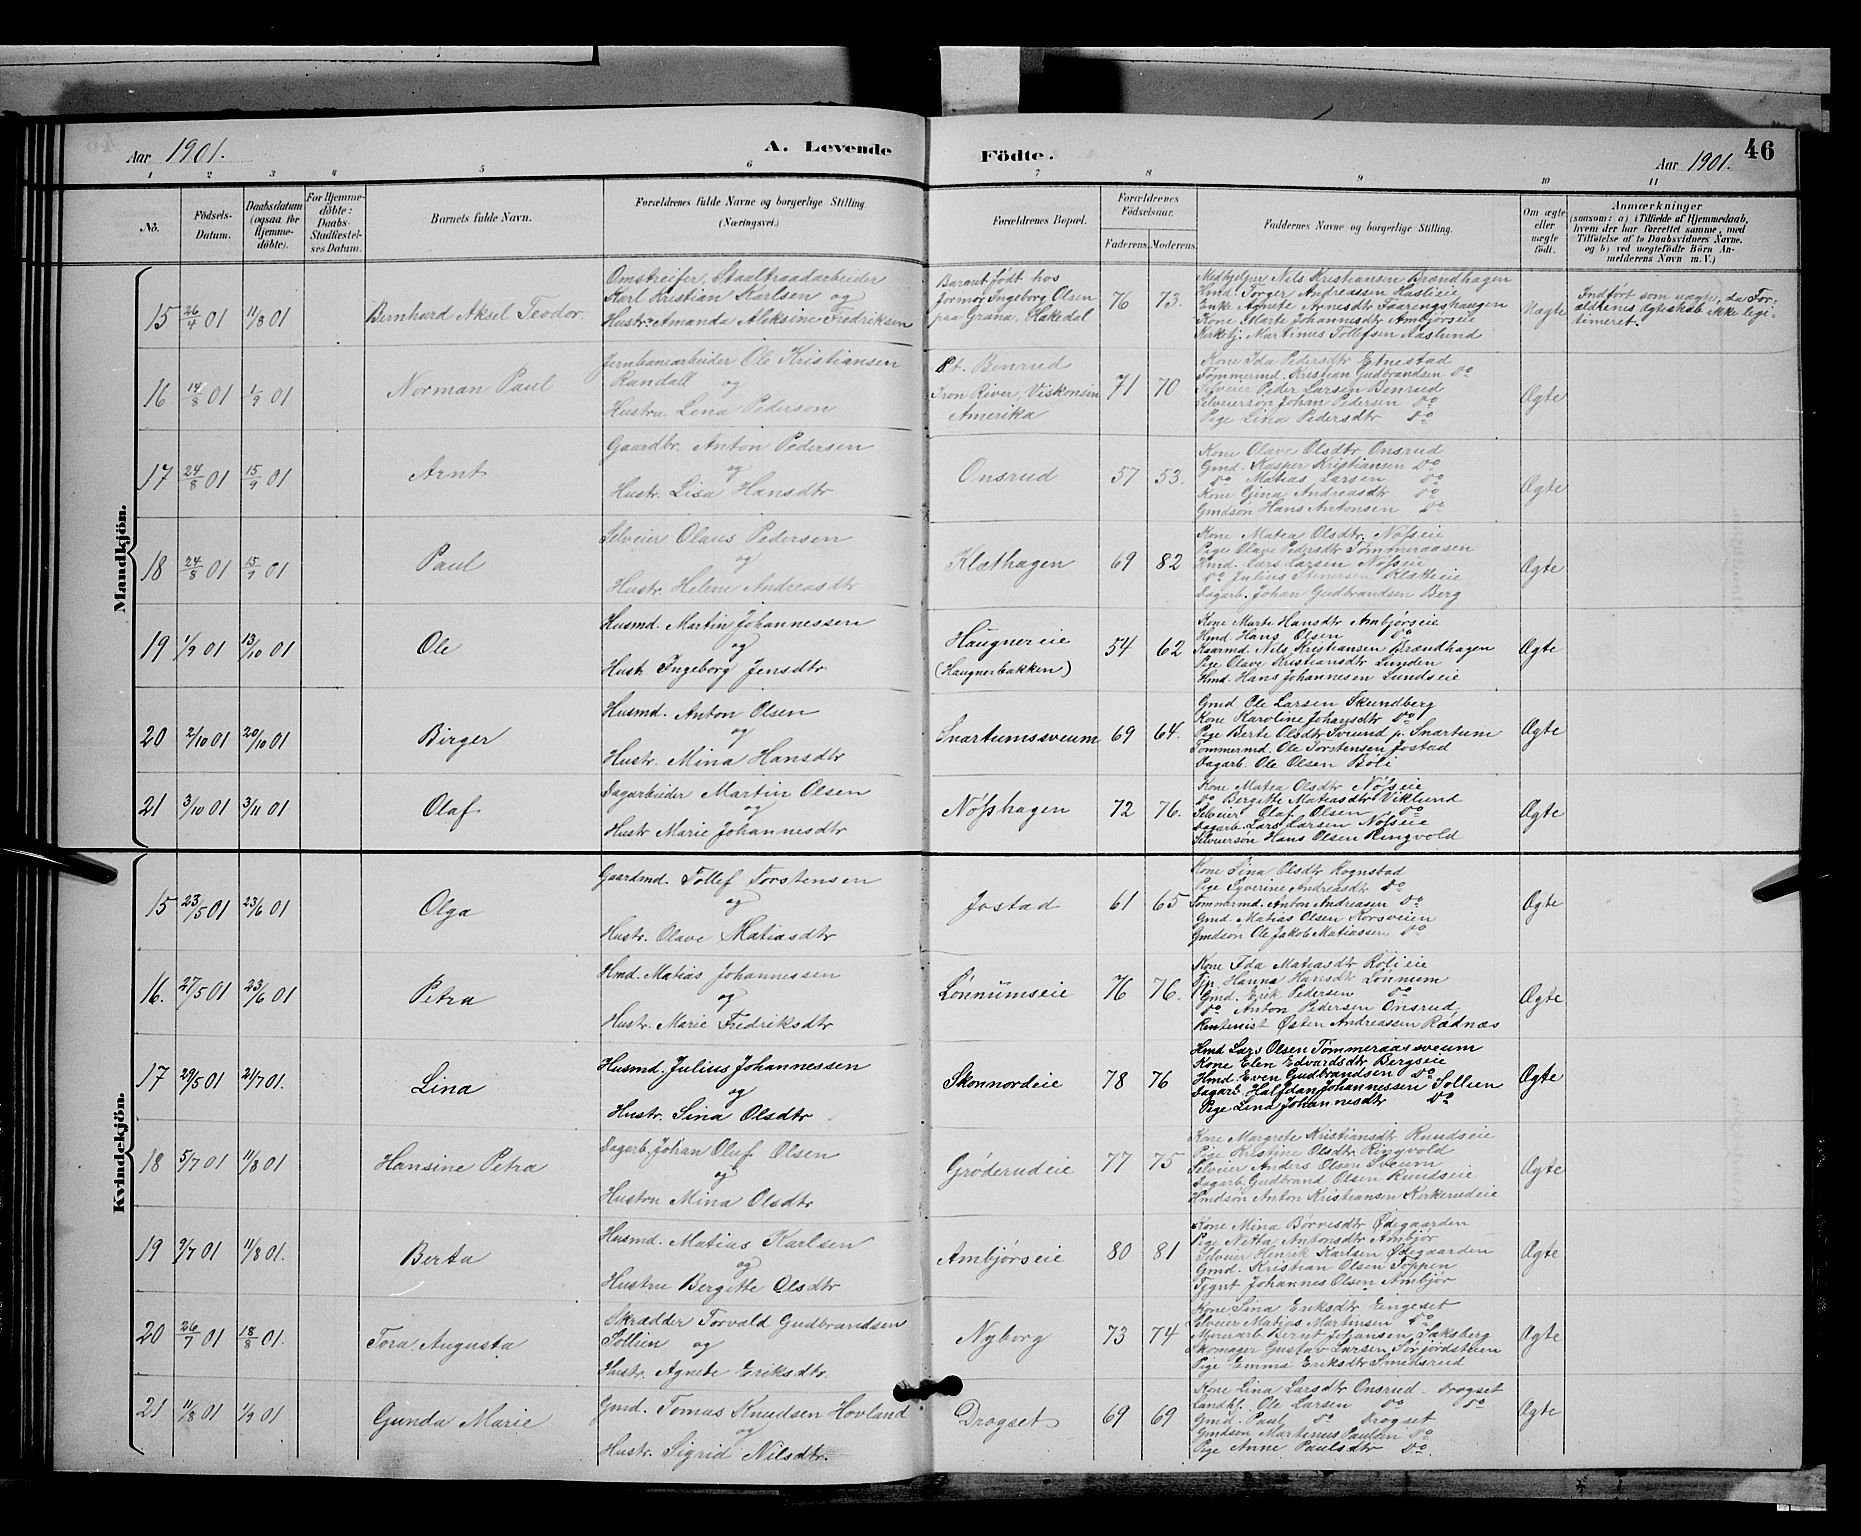 Aar 1901.
A. Levende
Födte.
Aar 1901.
46
1 2 3 4 5 6 7 8 9 10 11
No.
Födsels-
Datum.
Daabsdatum
(ogsaa for
Hjemme-
döbte).
For Hjemme-
döbte:
Daabs-
Stadfæstel-
ses Datum.
Barnets fulde Navn.
Forældrenes fulde Navne og borgerlige Stilling
(Næringsvei.)
Forældrenes Bopæl.
Forældrenes
Födselsaar.
Faderens.
Moderens.
Faddernes Navne og borgerlige Stilling.
Om ægte
eller
uægte
födt.
Anmærkninger
(saasom: a) i Tilfælde af Hjemmedaab,
hvem der har forrettet samme, med
Tilföielse af to Daabsvidners Navne.
og b) ved uægtefödte Börn An-
melderens Navn m. V.)
Mandkjön.
15 26/4 01 11/8 01
Bernhard Aksel Teodor.
Omstreifer, Staaltraadarbeider
Karl Kristian Karlsen og
Hustr. Amanda Aleksine Fredriksen
Barnet født hos
Jormor Ingeborg Olsen
paa Grana, Hakedal
76 73.
Medhjelper Nils Kristiansen Brændhagen
Hmd. Torger Andreassen Haslieie
Enke Agnete Agnesdtr Faaringshaugen
Kone Marte Johannesdtr Ambjørseie
Kirketj. Martinus Tollefsen Aaslund
Uægte
Indført som uægte, da For-
ældrenes Ægteskab ikke legi-
timeret.
16 14/8 01 1/9 01
Norman Paul
Jernbanearbeider Ole Kristiansen
Randall og
Hustru Lena Pederson
Pt. Benrud
Iron River, Viskonsin
Amerika
71 70
Kone Ida Pedersdtr Etnestad
Tømmermd. Kristian Gudbrandsen Do
Selveier Peder Larsen Benrud
Selveiersøn Johan Pedersen Do
Pige Lina Pedersdtr Do
Ægte
17 24/8 01 15/9 01
Arnt
Gaardbr. Anton Pedersen
og
Hustr. Lisa Hansdtr
Onsrud
57 53.
Kone Olave Olsdtr Onsrud
Gmd. Kasper Kristiansen Do
Do Matias Larsen Do
Kone Gina Andreasdtr Do
Gmdsøn Hans Antonsen Do
Ægte
18 24/8 01 15/9 01
Paul
Selveier Olaus Pedersen
og
Hustr. Helene Andreasdtr
Klæthagen
69 82
Kone Matea Olsdtr Nøfseie
Pige Olave Pedersdtr Tømmeraasen
Hmd. Lars Larsen Nøfseie
Do Julius Stenersen Klætteie
Dagarb. Johan Gudbrandsen Berg
Ægte
19 1/9 01 13/10 01
Ole
Husmd. Martin Johannessen
og
Hust. Ingeborg Jensdtr.
Haugnereie
(Haugnerbakken)
54 62
Kone Marte Hansdtr Ambjørseie
Hmd. Hans Olsen Do
Kaarmd. Nils Kristiansen Brændhagen
Pige Olave Kristiansdtr Lunden
Hmd. Hans Johannesen Lundseie
Ægte
20 2/10 01 20/10 01
Birger
Husmd. Anton Olsen
og
Hustr. Mina Hansdtr
Svartumssveum
69 64.
Gmd Ole Larsen Skundberg
Kone Karoline Johansdtr Do
Pige Berte Olsdtr Sveund p. Svartum
Tømmermd. Ole Torstensen Jostad
Dagarb. Ole Olsen Boli
Ægte
21 3/10 01 3/11 01
Olaf
Dagarbeider Martin Olsen
og
Hustr Marie Johannesdtr
Nøfshagen
72 76.
Kone Matea Olsdtr Nøfseie
Do Bergitte Matiasdtr Viklund
Selveier Olaf Olsen Do
Dagarb. Lars Larsen Nøfseie
Selveiersøn Hans Olsen Ringvold
Ægte
Kvindekjön.
15 23/5 01 23/6 01
Olga
Gaardmd. Tollef Torstensen
og
Hustr. Olave Matiasdtr
Jostad
61 65
Kone Lina Olsdtr Rognstad
Pige Syverine Andreasdtr Do
Tømmermd. Anton Andreasen Do
Gmd. Matias Olsen Korsveien
Gmdsøn Ole Jakob Matiassen Do
Ægte
16. 27/5 01 23/6 01
Petra
Hmd. Matias Johannessen
og
Hustr. Marie Fredriksdtr
Lønnumseie
76 76.
Kone Ida Matiasdtr Rølieie
Tjp. Hanna Hansdtr Lønnum
Gmd. Erik Pedersen Do
Do Anton Pedersen Onsrud,
Rentenist Østen Andreassen Rødnæs
Ægte
17 29/5 01 21/7 01.
Lina
Husmd. Julius Johannessen
og
Hustr. Sina Olsdtr.
Skonnordeie
78 76
Hmd Lars Olsen Tømmeraassveum
Kone Elen Edvardsdtr Bergseie
Hmd. Even Gudbrandsen Do
Dagarb. Halfdan Johannessen Sollien
Pige Lina Johannesdtr Do
Ægte
18 5/7 01 11/8 01
Hansine Petra
Dagarb. Johan Oluf Olsen
og
Hustru Mina Olsdtr
Grøderudeie
77 75
Kone Margrete Kristiansdtr Rundseie
Pige Kristine Olsdtr Ringvold
Selveier Anders Olsen Sveum
Dagarb. Gudbrand Olsen Rundseie
Hmdsøn Anton Kristiansen Kirkerudeie
Ægte
19 9/7 01 11/8 01.
Berta
Husmd. Matias Karlsen
og
Hustru Bergitte Olsdtr
Ambjørseie
80 81
Kone Mina Børresdtr Ødegaarden
Pige Netta Antonsdtr Ambjør
Selveier Henrik Karlsen Ødegaarden
Gmd. Kristian Olsen Toppen
Tjgut Johannes Olsen Ambjør
Ægte
20 26/7 01 18/8 01.
Tora Augusta
Skrædder Torvald Gudbrandsen
Sollien og
Hustr. Agnete Eriksdtr.
Nyborg
73 74
Kone Lina Eriksdtr Eingeset
Selveier Matias Martinsen Do
Murerarb Bernt Johansen Saksberg
Skomager Gustav Larsen Sørjordsteien
Pige Emma Eriksdtr Smedsrud
Ægte
21 11/8 01 1/9 01
Gunda Marie
Gmd. Tomas Knudsen Hovland
og
Hustr. Sigrid Nilsdtr.
Drogset
69 69
Kone Lina Larsdtr Onsrud. Drogset
Landhl. Ole Larsen Do Do
Gmd. Paul Do Drogset
Gmdsøn Martinus Paulsen Do
Pige Anne Paulsdtr Do.
Ægte